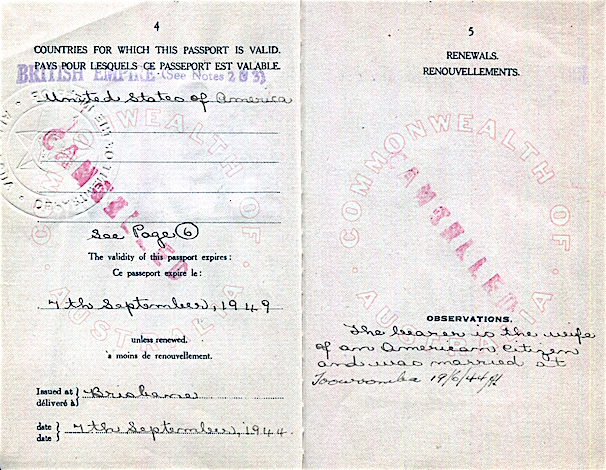 4
COUNTRIES FOR WHICH THIS PASSPORT IS VALID.
PAYS POUR LESQUELS CE PASSEPORT EST VALABLE.
BRITISH EMPIRE (See Notes 2 & 3)
United States of America
COMMONWEALTH OF AUSTRALIA
CANCELLED
See Page 6
The validity of this passport expires:
Ce passeport expire le:
7th September, 1949
unless renewed.
à moins de renouvellement.
Issued at
délivéré à
Brisbane
date
date
7th September, 1944.
5
RENEWALS.
RENOUVELLEMENTS.
COMMONWEALTH OF AUSTRALIA
CANCELLED
OBSERVATIONS.
The bearer is the wife
of an American Citizen
and was married at
Toowoomba 19/6/44